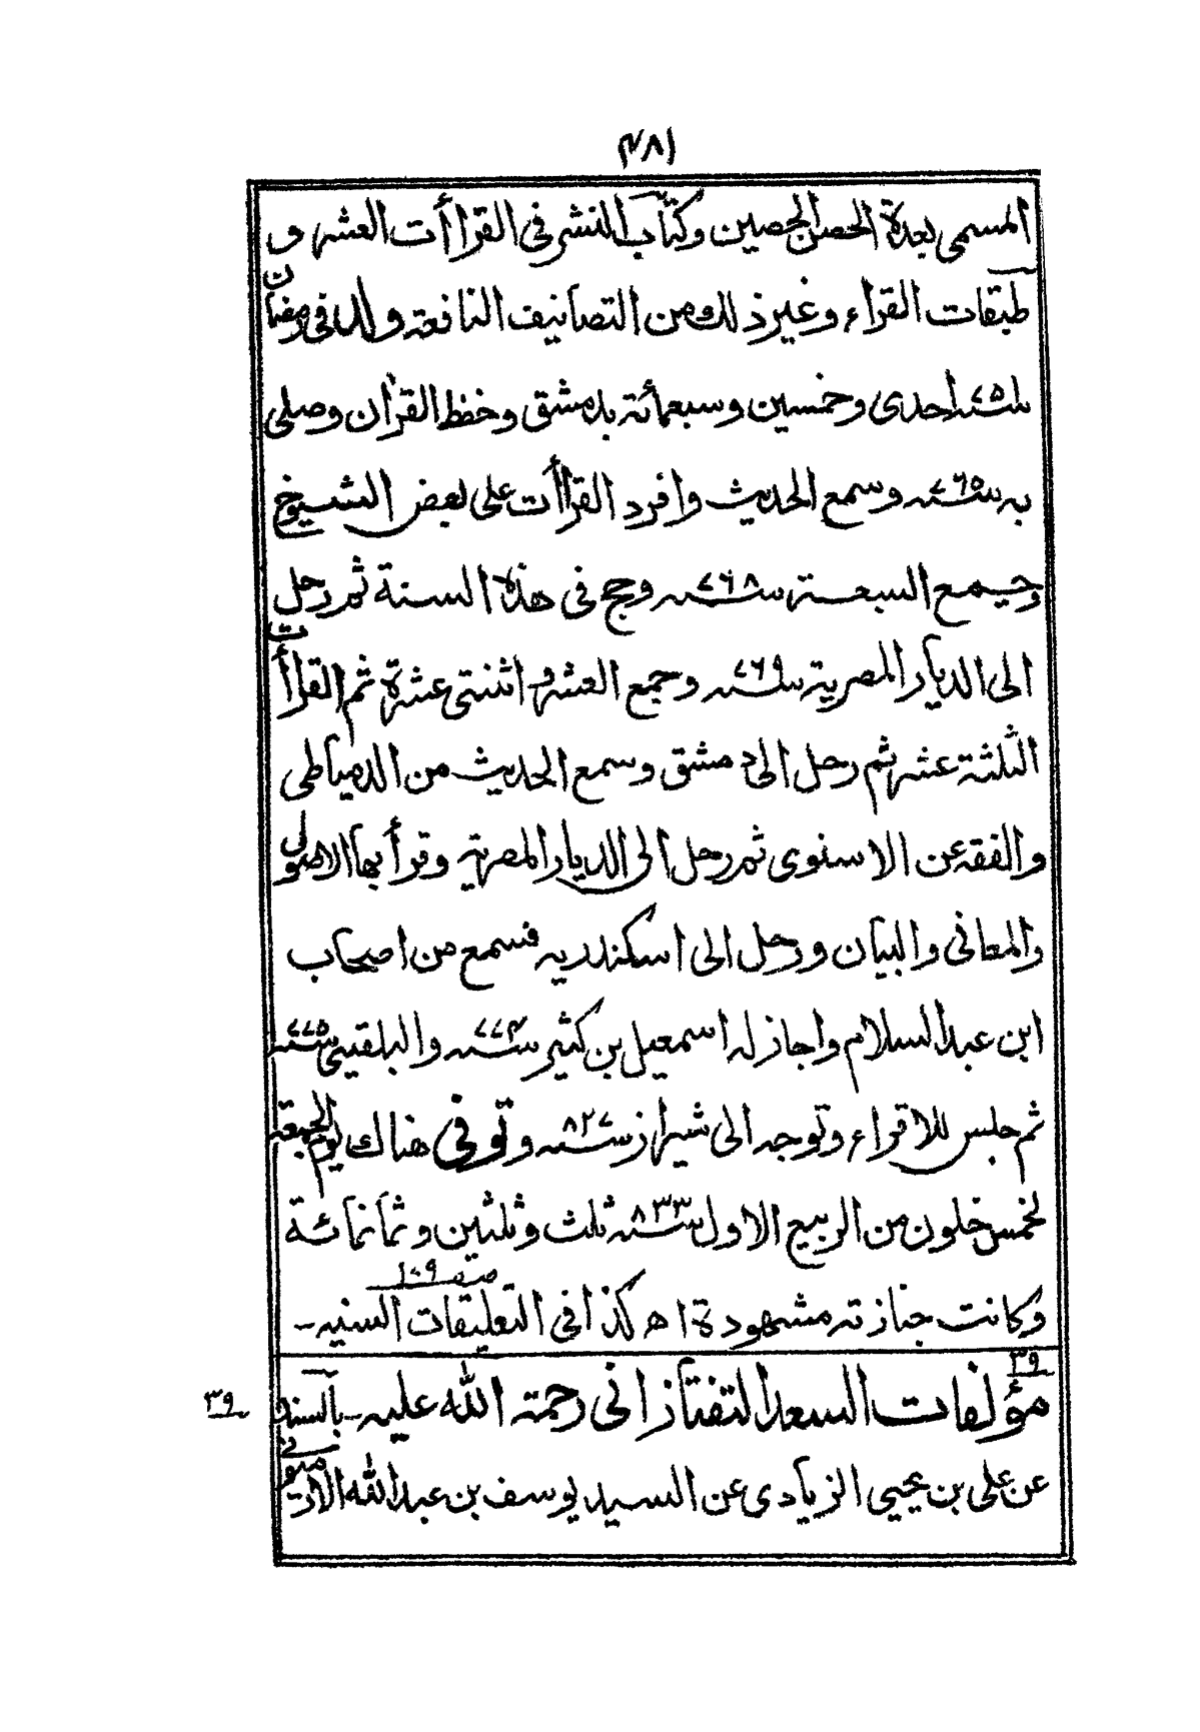 ٤٨١
المسمی بعدة الحصن الحصین وکتاب النشر فی القرأت العشر و
طبقات القراء وغیر ذلك من التصانیف النافعة ولد فی رمضان
سنة ٧٥١ احدی وخمسین وسبعمائة بدمشق وحفظ القرآن وصلی
به سنة ٧٦٥ وسمع الحدیث وافرد القراأت علی بعض الشیوخ
وجمع السبعة سنة ٧٦٨ وحج فی هذه السنة ثم رحل
الی الدیار المصریة سنة ٧٦٩ وجمع العشر واثنتی عشرة ثم القرأت
الثلثة عشر ثم رحل الی دمشق وسمع الحدیث من الدمیاطی
والفقه عن الاسنوی ثم رحل الی الدیار المصریة وقرأ بها الاصول
والمعانی والبیان ورحل الی اسکندریه فسمع من اصحاب
ابن عبد السلام واجاز له اسمعیل بن کثیر سنة ٧٧٤ والبلقینی سنة ٧٧٥
ثم جلس للاقراء وتوجه الی شیراز سنة ٨٢٧ وتوفی هناك یوم الجمعة
لخمس خلون من الربیع الاول سنة ٨٣٣ ثلث وثلثین وثمانمائة
وکانت جنازته مشهودة اه کذا فی التعلیقات السنیه۔ صـ ١٠٩
٣٩ مؤلفات السعد التفتازانی رحمة الله علیه۔ بالسند ٣٩
عن علی بن یحیی الزیادی عن السید یوسف بن عبد الله الارمیونی